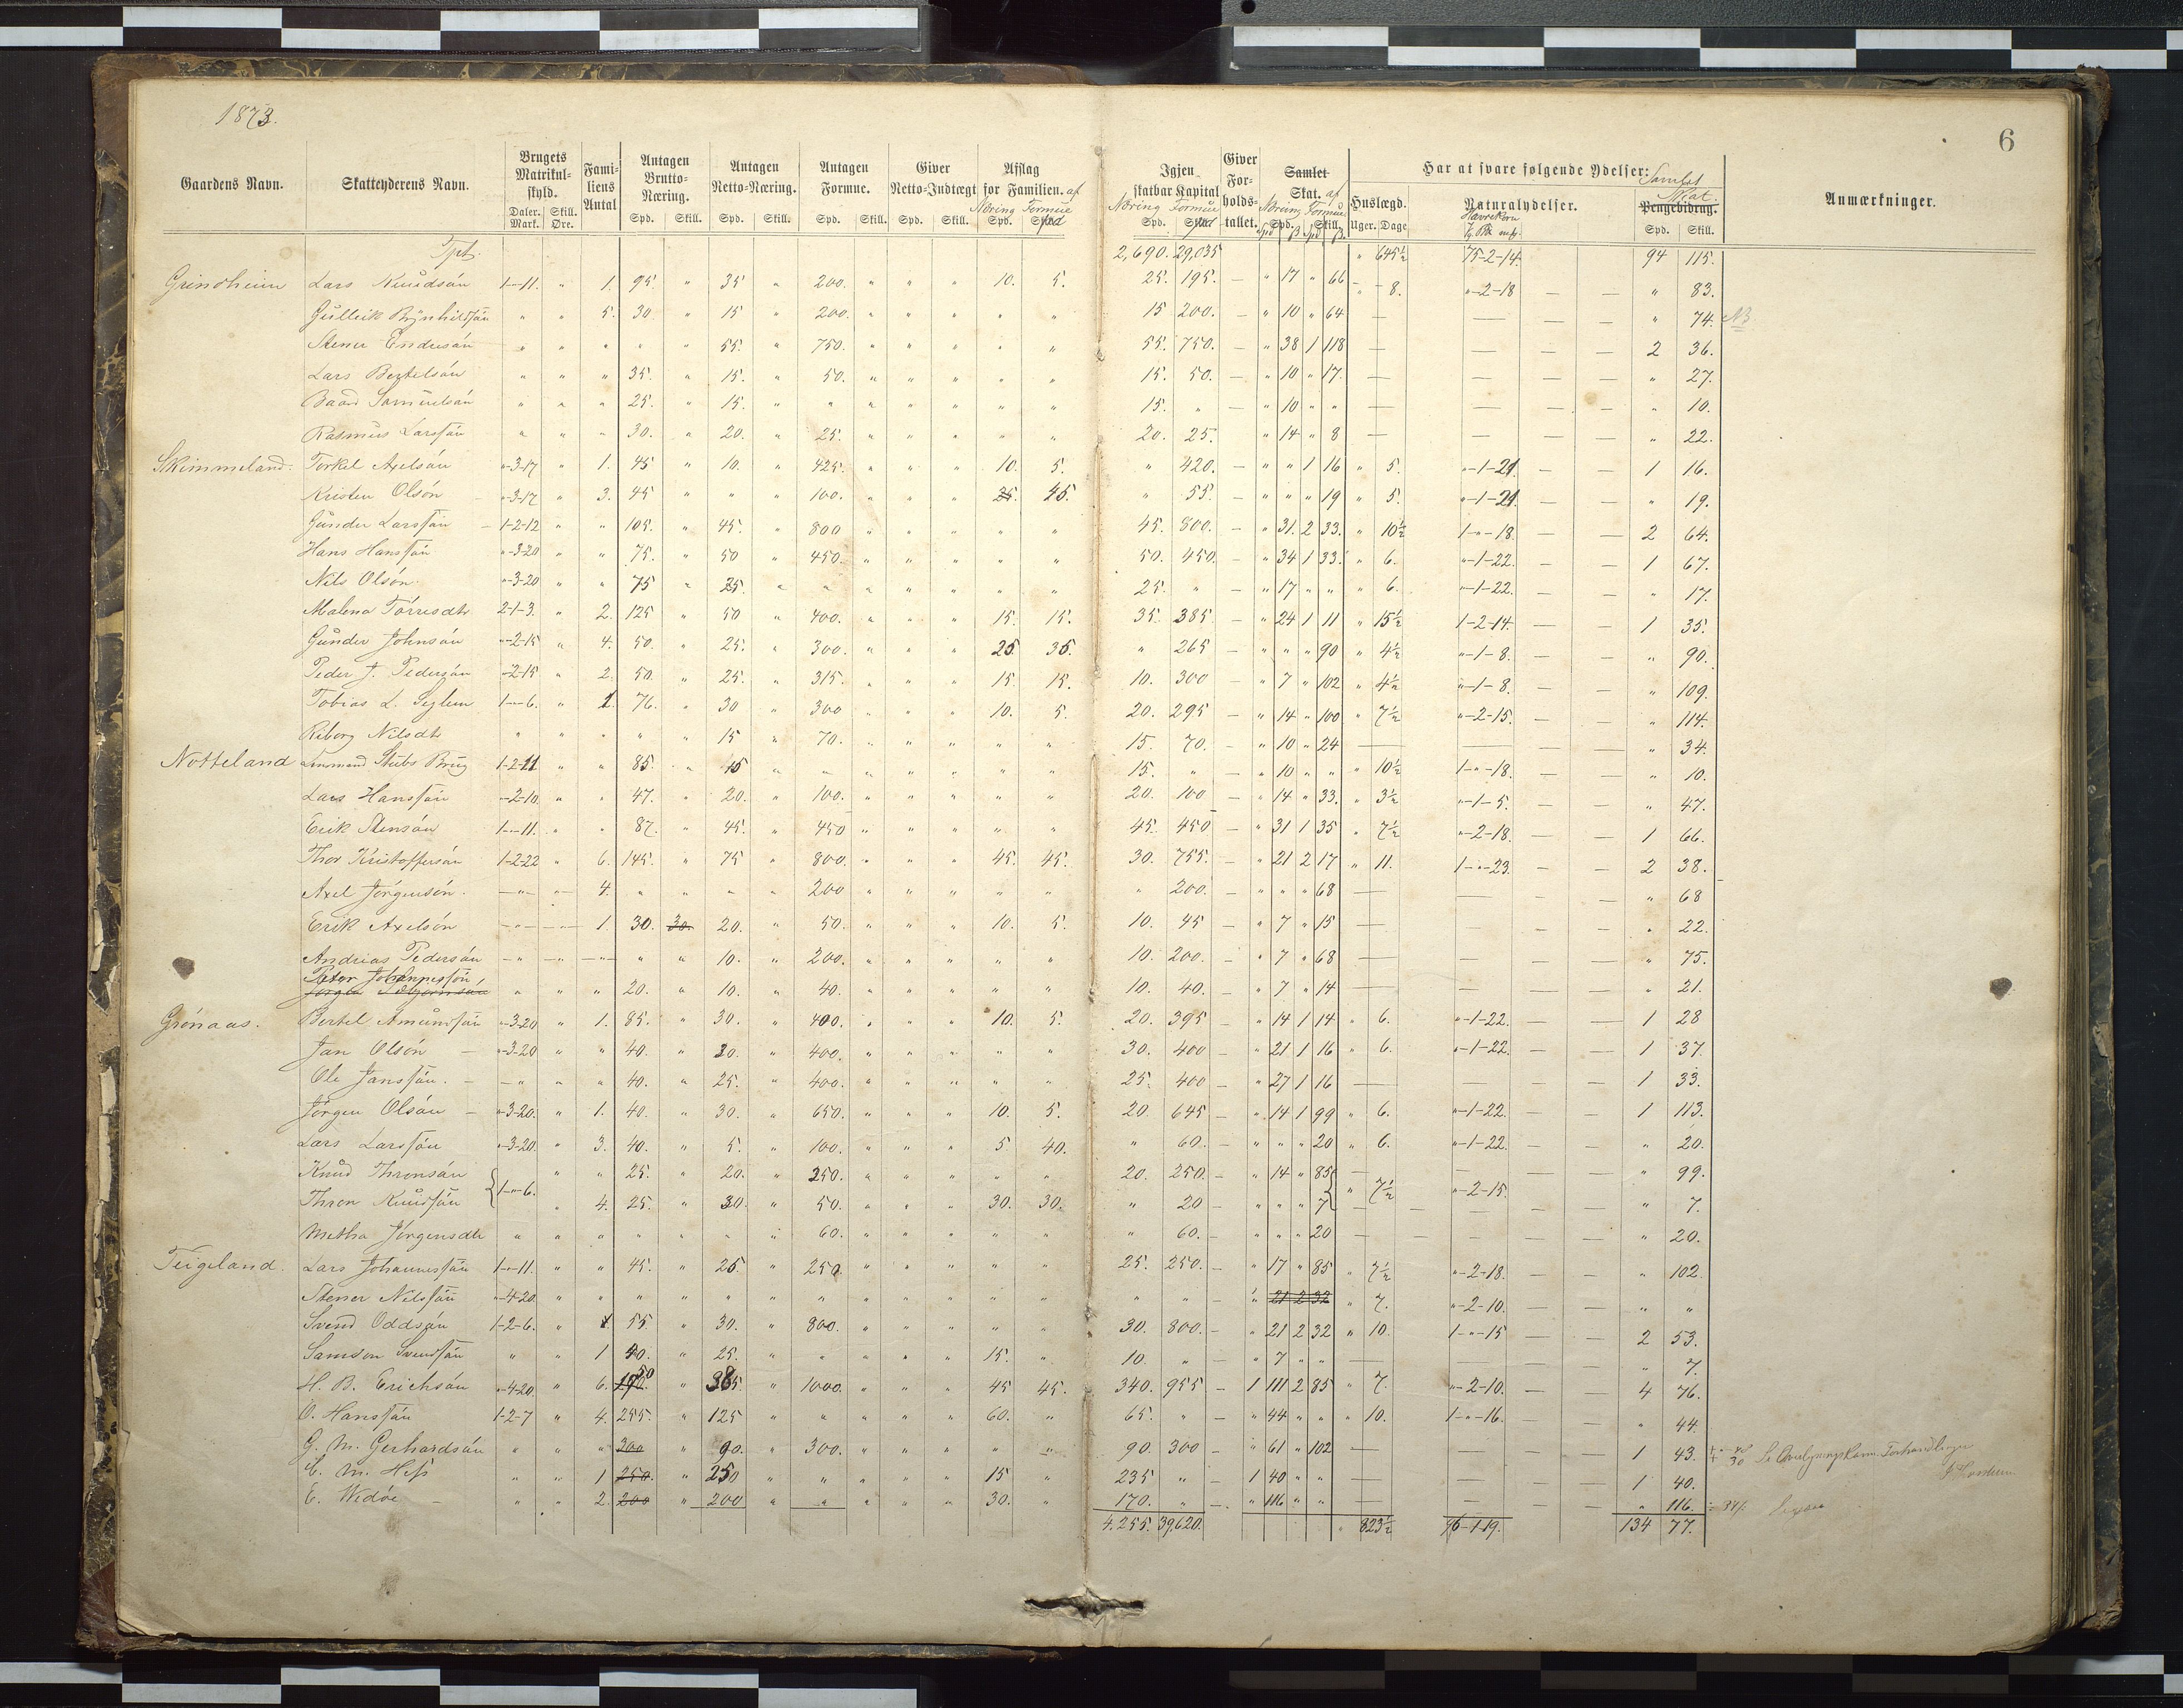 1873.
6
Gaardens Navn. Skatteyderens Navn. Brugets Matrikul-skyld. Fami-liens Antal Antagen Brutto-Næring. Antagen Netto-Næring. Antagen Formue. Giver Netto-Indtægt Afslag for Familien. af Igjen skatbar Kapital Giver For-holds-tallet. Samlet Skat. af Har at svare følgende Ydelser: Anmærkninger.
Daler. Mark. Skill. Øre. Spd. Skill. Spd. Skill. Spd. Skill. Spd. Skill. Næring Formue Spd. Næring Formue Spd. Næring Formue Spd. Skill. Huslægd. Uger. Dage Naturalydelser. Havrekorn Samlet Skat. Pengebidrag. Spd. Skill.
Tpt. 2,690. 29,035 " 645½ 75-2-14. 94 115.
Grindheim Lars Knudsøn 1-"-11. " 1. 95. " 35 " 200. " " " 10. 5. 25. 195. - " 17 " 66 " 8. "-2-18 — — " 83.
Gulleik Brynhildsøn " " 5. 30 " 15 " 200. " " " " " 15 200. - " 10 " 64 — — — — " 74. NB.
Stener Endresøn " " " " " 55. " 750. " " " " " 55. 750. - " 38 1 118 — — — — 2 36.
Lars Bertelsøn " " " 35. " 15. " 50. " " " " " 15. 50. - " 10 " 17. — — — — " 27.
Baard Samuelsøn " " " 25. " 15. " " " " " " " 15. " - " 10 " " — — — — " 10.
Rasmus Larssøn " " " 30. " 20. " 25. " " " " " 20. 25. " 14 " 8 — — — — " 22.
Skimmeland. Torkel Axelsøn "-3-17 " 1. 45 " 10. " 425. " " " 10. 5. " 420. - " " 1 16 " 5. "-1-21 — — 1 16.
Kristen Olsøn "-3-17 " 3. 45 " " " 100. " " " 25. 45. " 55. - " " " 19 " 5. "-1-21. — — " 19.
Gunder Larssøn 1-2-12 " " 105. " 45. " 800 " " " " " 45. 800. - " 31. 2 33. " 10½ 1-"-18. — — 2 64.
Hans Hanssøn "-3-20 " " 75. " 50 " 450. " " " " " 50. 450. - " 34 1 33. " 6. "-1-22. — — 1 67.
Nils Olsøn. "-3-20 " " 75 " 25. " " " " " " " 25. " - " 17 " " " 6. "-1-22. — — " 17.
Malena Tørresdtr 2-1-3. " 2. 125 " 50 " 400. " " " 15. 15. 35. 385. - " 24 1 11 " 15½ 1-2-14. — — 1 35.
Gunder Johnsøn "-2-15 " 4. 50. " 25. " 300. " " " 25. 35. " 265 - " " " 90 " 4½ "-1-8. — — " 90.
Peder J. Pedersøn "-2-15 " 2. 50. " 25. " 315. " " " 15. 15. 10. 300 - " 7 " 102 " 4½ "-1-8. — — " 109.
Tobias L. Seglem 1-"-6. " 1. 76. " 30 " 300 " " " 10. 5. 20. 295 - " 14 " 100 " 7½ "-2-15. — — " 114.
Reborg Nilsdtr " " " " " 15 " 70. " " " " " 15. 70. - " 10 " 24 — — — — " 34.
Notteland Lensmand Stubs Brug 1-2-11 " " 85. " 15 " " " " " " " 15. " - " 10 " " " 10½ 1-"-18. — — " 10.
Lars Hanssøn "-2-10. " " 47. " 20. " 100. " " " " " 20. 100 - " 14 " 33. " 3½ "-1-5. — — " 47.
Erik Stensøn 1-"-11. " " 87. " 45. " 450 " " " " " 45. 450 - " 31 1 35 " 7½ "-2-18. — — 1 66.
Thor Kristoffersøn 1-2-22 " 6. 145. " 75 " 800. " " " 45. 45. 30. 755. - " 21 2 17 " 11. 1-"-23. — — 2 38.
Axel Jørgensøn. " " 4. " " " " 200 " " " " " " 200. - " " " 68 — — — — " 68
Erik Axelsøn " " 1. 30. 30. 20. " 50. " " " 10. 5. 10. 45 - " 7 " 15 — — — — " 22.
Andreas Pedersøn " " " " " 10. " 200. " " " " " 10. 200. - " 7 " 68 — — — — " 75.
Peter Johannessøn
Jørgen " " " 20. " 10. " 40. " " " " " 10. 40. - " 7 " 14 — — — — " 21.
Grønaas. Bertel Amundsøn "-3-20 " 1. 85. " 30. " 400. " " " 10. 5. 20. 395 - " 14 1 14 " 6. "-1-22. — — 1 28
Jan Olsøn "-3-20 " " 40. " 30. " 400. " " " " " 30. 400 - " 21 1 16 " 6. "-1-22. — — 1 37.
Ole Janssøn. " " " 40. " 25. " 400. " " " " " 25. 400 - " 27 1 16 — — — — 1 33.
Jørgen Olsøn "-3-20. " 1. 40. " 30. " 650. " " " 10. 5. 20. 645 - " 14 1 99 " 6. "-1-22. — — 1 113.
Lars Larssøn "-3-20. " 3. 40. " 5. " 100. " " " 5 40. " 60. - " " " 20 " 6. "-1-22. — — " 20.
Knud Thronsøn " " 25. " 20. " 250. " " " " " 20. 250. - " 14 " 85 — — — — " 99.
1-"-6. " 7½ "-2-15.
Thron Knudsøn " 4. 25. " 30. " 50. " " " 30. 30. " 20 - " " " 7 — — " 7.
Metha Jørgensdtr " " " " " " " 60. " " " " " " 60. - " " " 20 — — — — " 20.
Teigeland. Lars Johannessøn 1-"-11. " " 45. " 25. " 250. " " " " " 25. 250. - " 17 " 85 " 7½ "-2-18. — — " 102.
Stener Nilssøn "-4-20. " " " " " " " " " " " " " " - " 21 2 32 " 7. "-2-10. — — " "
Svend Oddsøn 1-2-6. " 55. " 30. " 800. " " " " " 30. 800. - " 21 2 32 " 10. 1-"-15 — — 2 53.
Samson Svendsøn " " 1 40. " 25. " " " " " 15. " 10. " - " 7 " " — — — — " 7.
H. B. Erichsøn "-4-20. " 6. 50 " 385 " 1000. " " " 45 45. 340. 955 - 1 111 2 85 " 7. "-2-10. — — 4 76.
O. Hanssøn 1-2-7 " 4. 255. " 125 " " " " " 60. " 65. " - " 44 " " " 10. 1-"-16. — — " 44.
G. M. Gerhardsøn " " " 300 " 90. " 300. " " " " " 90. 300 - " 61 " 102 — — — — 1 43.
E. M. Hess " " 1 250. " 250 " " " " " 15 " 235 " - 1 40 " " — — — — 1 40.
E. Widöe " " 2. 200 " 200 " " " " " 30. " 170. " - " 116 " " — — — — " 116.
4.255. 39,620. 823½ 96-1-19. 134 77.